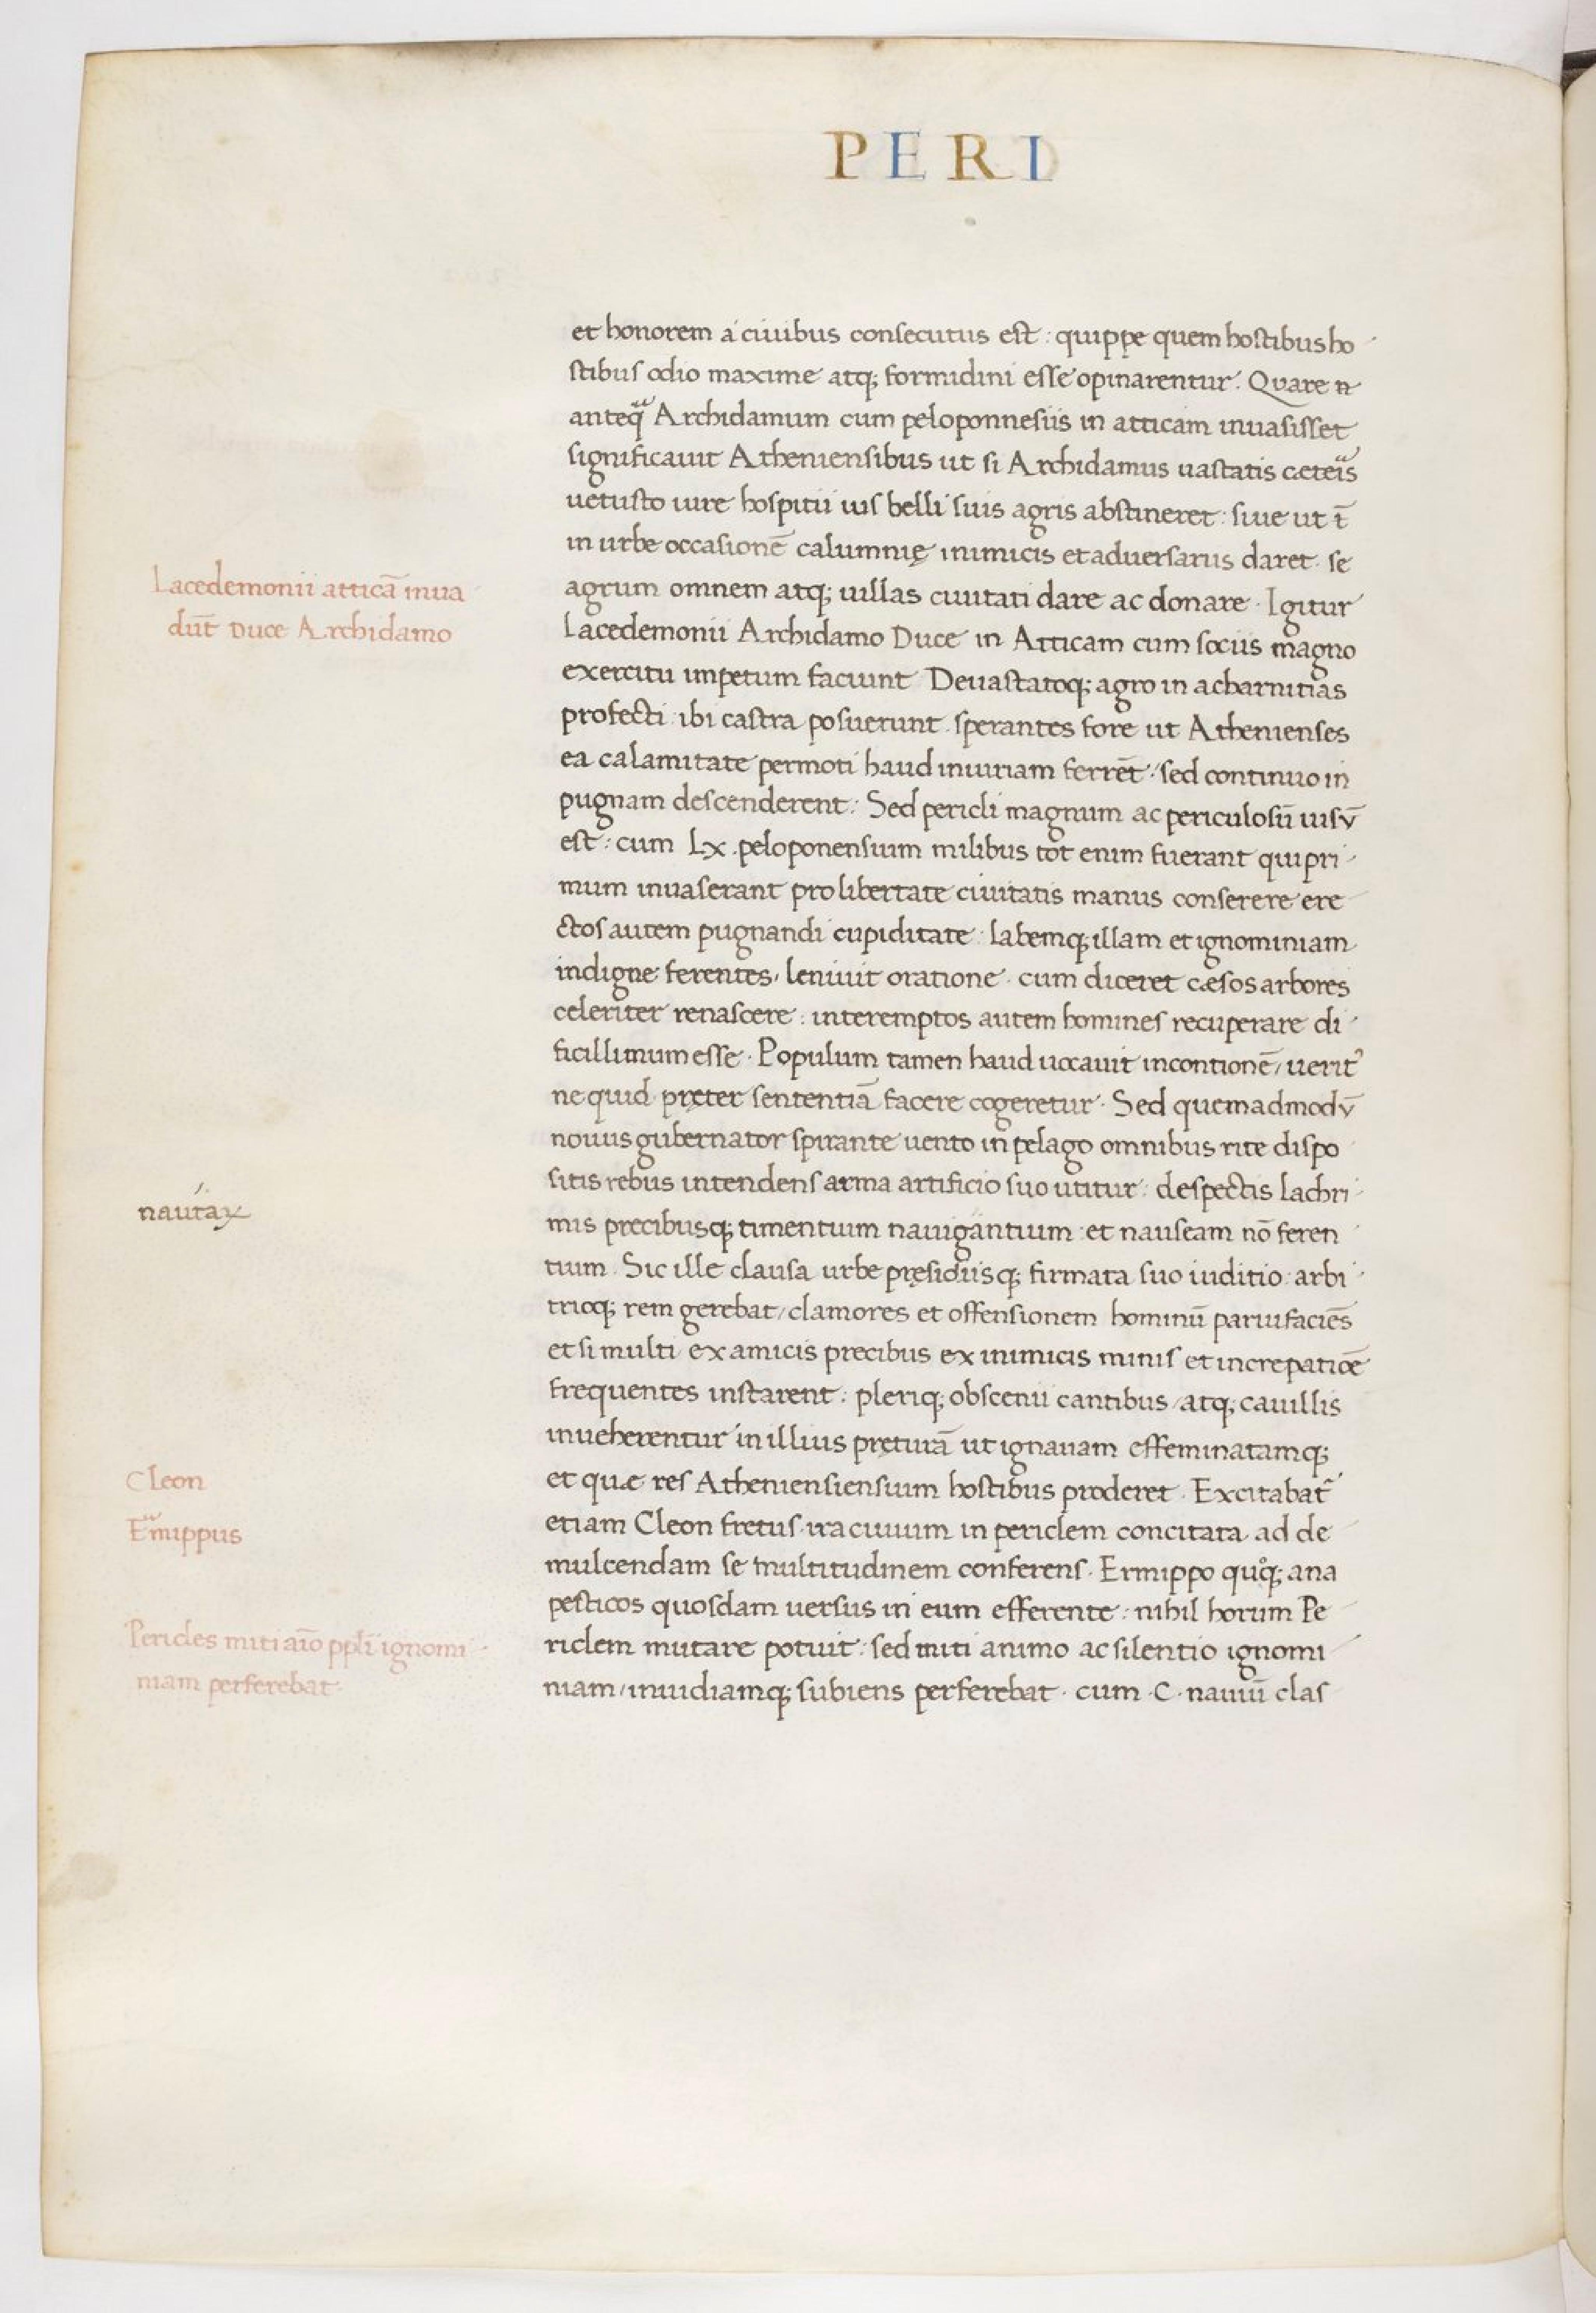 PERI
et honorem a ciuibus consecutus est : quippe quem hostibus ho
stibus odio maxime atq; formidini esse opinarentur. Quare n̄
anteq̃ Archidamum cum peloponnesiis in atticam inuasisset
significauit Atheniensibus ut si Archidamus uastatis cæteĩs
uetusto iure hospitii uis belli suis agris abstineret : siue ut t̄
in urbe occasionē calumnię inimicis et aduersariis daret · se
Lacedemonii atticā inua
dūt Duce Archidamo
agrum omnem atq; uillas ciuitati dare ac donare · Igitur
Lacedemonii Archidamo Duce in Atticam cum sociis magno
exercitu impetum faciunt Deuastatoq; agro in acharnitias
profecti · ibi castra posuerunt · sperantes fore ut Athenienses
ea calamitate permoti haud iniuriam ferrēt : sed continuo in
pugnam descenderent : Sed pericli magnum ac periculosū uisv̄
est : cum Lx · peloponensium milibus tot enim fuerant qui pri
mum inuaserant pro libertate ciuitatis manus conserere ere
ctos autem pugnandi cupiditate : labemq; illam et ignominiam
indigne ferentes, leniuit oratione · cum diceret cæsos arbores
celeriter renascere : interemptos autem homines recuperare di
ficillimum esse · Populum tamen haud uocauit in contionē, uerit᾽
ne quid pręter sententiā facere cogeretur · Sed quemadmodv̄
nouus gubernator spirante uento in pelago omnibus rite dispo
sitis rebus intendens arma artificio suo utitur : despectis lachri
nautaꝝ
mis precibusq; timentium nauigantium : et nauseam nō feren
tium · Sic ille clausa urbe pręsidiisq; firmata suo iuditio : arbi
trioq; rem gerebat, clamores et offensionem hominū paruifaciēs
et si multi ex amicis precibus ex inimicis minis et increpatiōe
frequentes instarent : pleriq; obscenii cantibus, atq; cauillis
inueherentur in illius pręturā ut ignauam effeminatamq;
Cleon
et quæ res Atheniensiensium hostibus proderet · Excitabat᷑
Ẽmippus
etiam Cleon fretus · ira ciuium in periclem concitata · ad de
mulcendam se multitudinem conferens · Ermippo quoq; ana
pesticos quosdam uersus in eum efferente : nihil horum Pe
Pericles miti aīo ppl̄i ignomi
niam perferebat ·
riclem mutare potuit : sed miti animo ac silentio ignomi
niam, inuidiamq; subiens perferebat · cum · C · nauiū clas